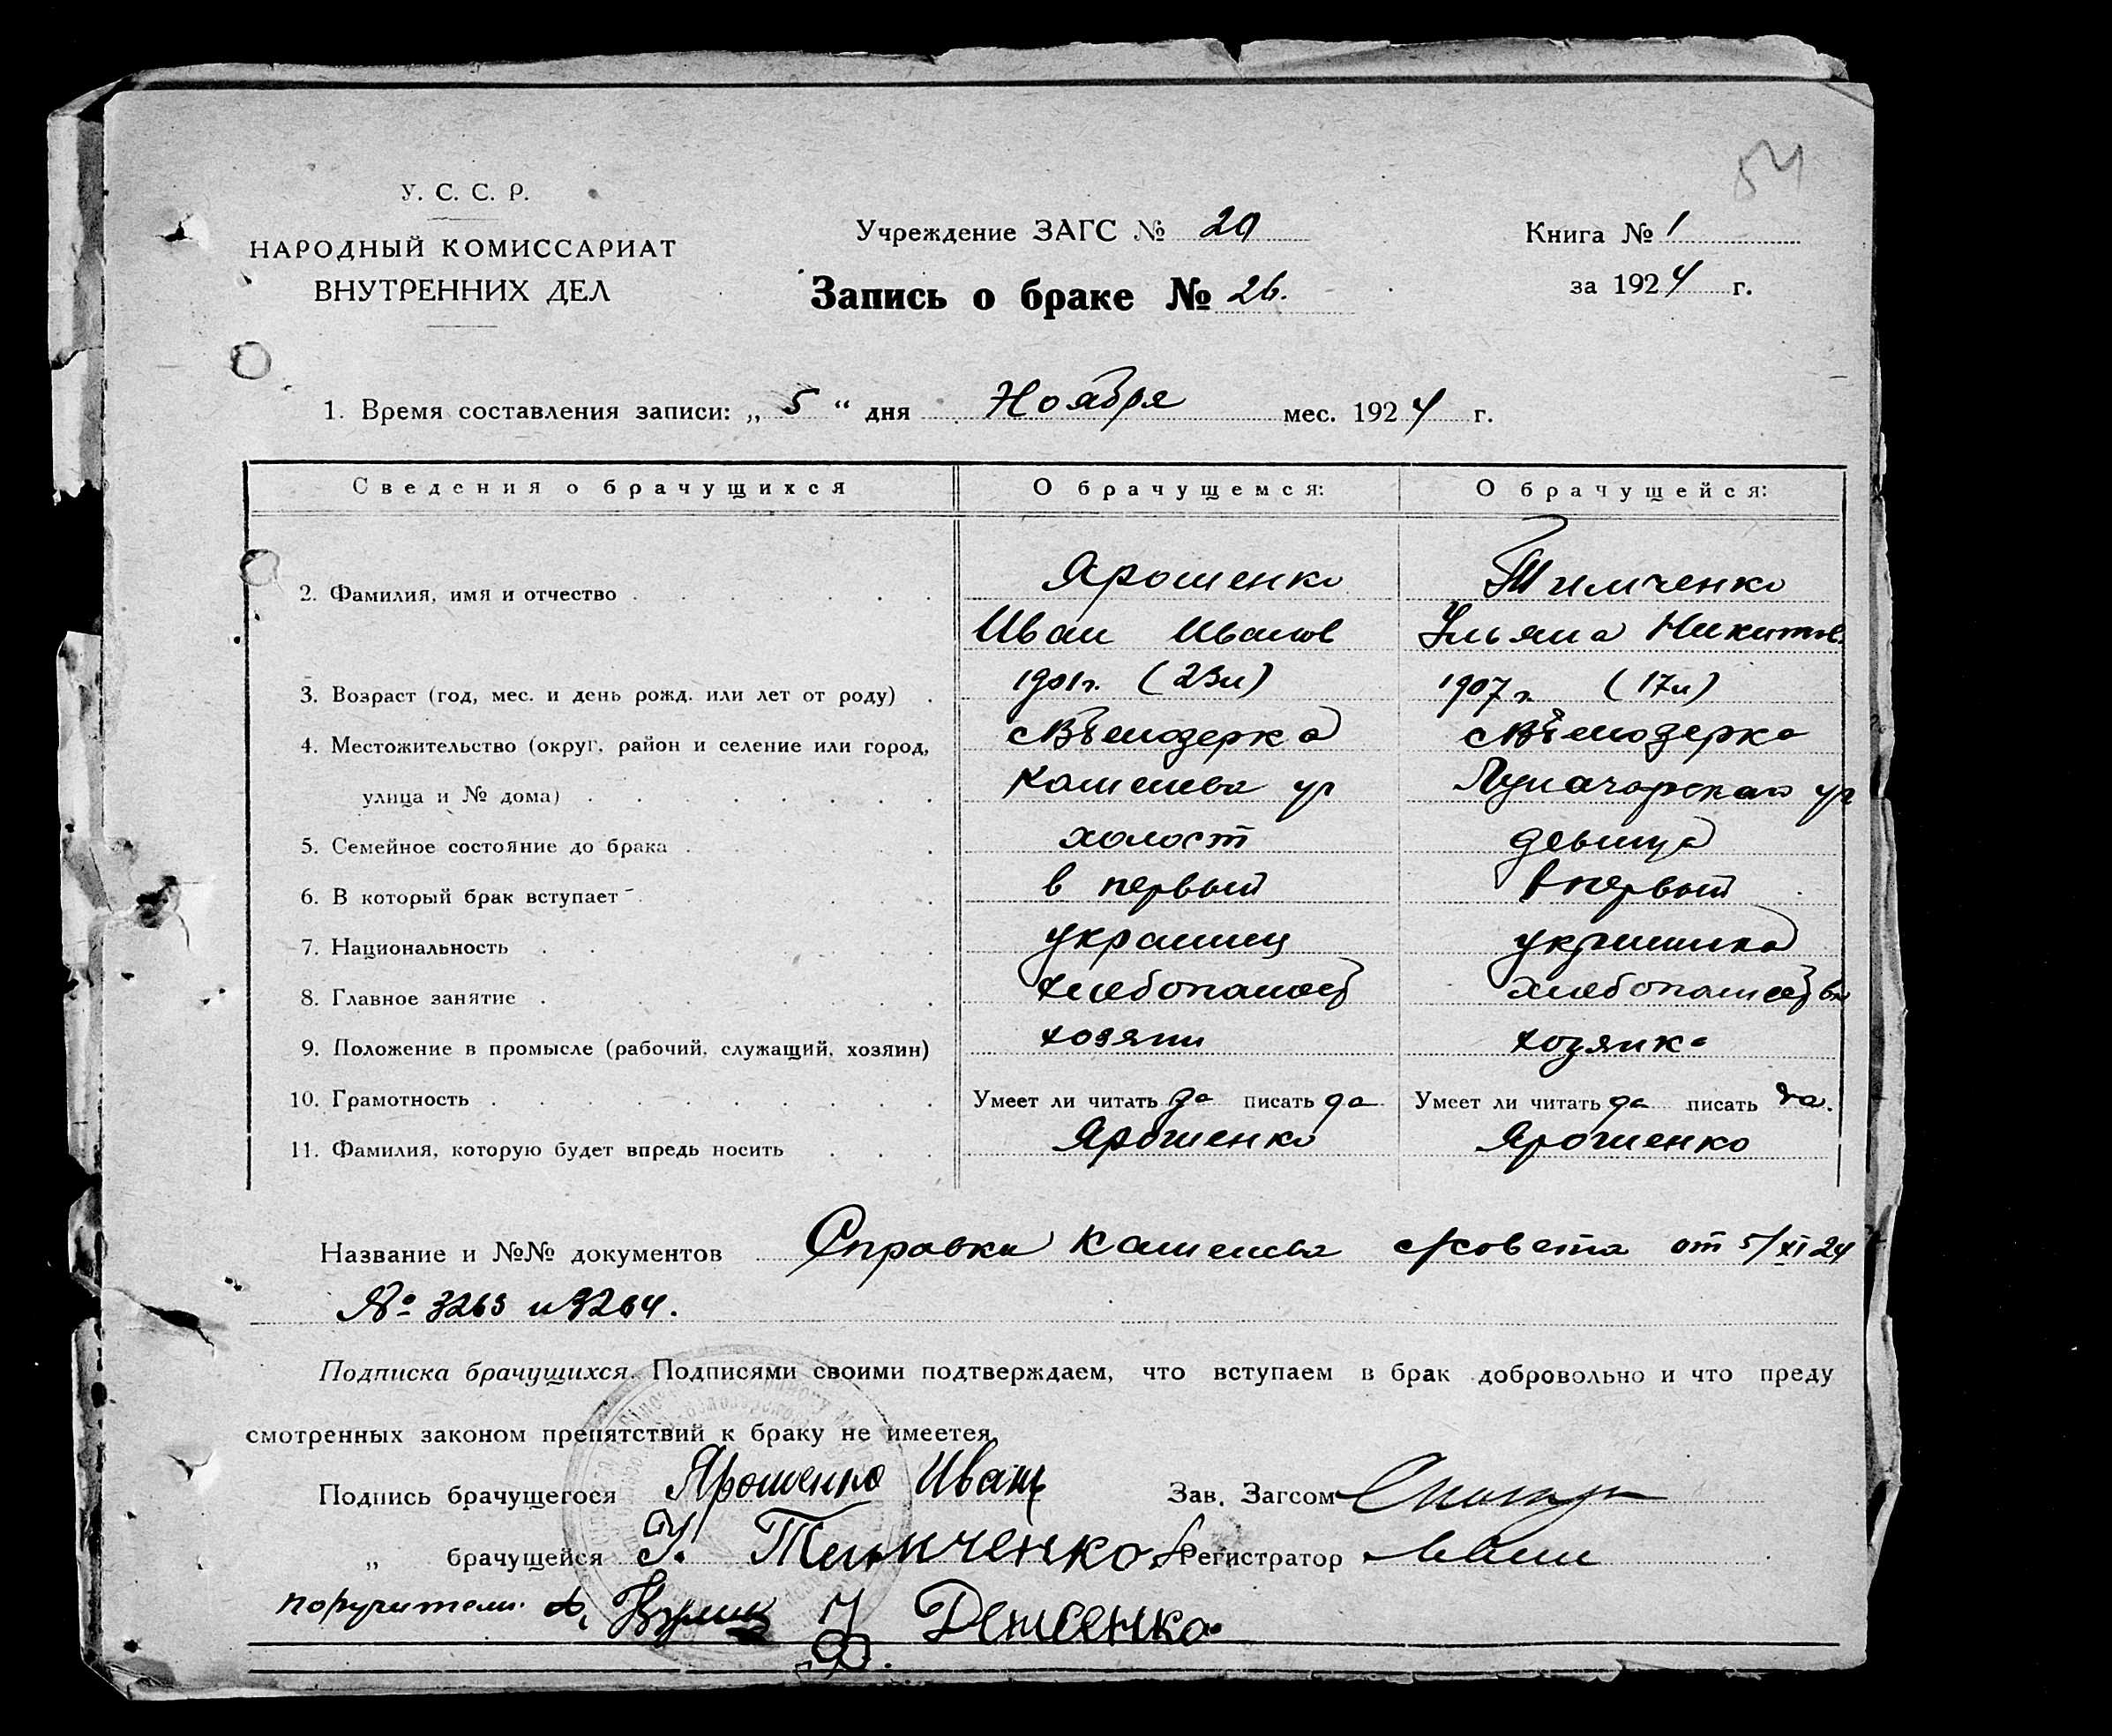 54
У. С. С. Р.
НАРОДНЫЙ КОМИССАРИАТ
ВНУТРЕННИХ ДЕЛ
Учреждение ЗАГС № 20
Запись о браке № 26.
Книга № 1
за 1924 г.
1. Время составления записи: „ 5 “ дня Ноября мес. 1924 г.
Сведения о брачущихся О брачущемся: О брачущейся:
2. Фамилия, имя и отчество Ярошенко Тимченко
Иван Иванов Ульяна Никитов.
3. Возраст (год, мес. и день рожд. или лет от роду) 1901г. (23л) 1907г. (17л)
4. Местожительство (округ, район и селение или город,
улица и № дома) ул Луначарская ул
5. Семейное состояние до брака холост девица
6. В который брак вступает в первый в первый
7. Национальность украинец украинка
8. Главное занятие хлебопашец
9. Положение в промысле (рабочий, служащий, хозяин) хозяин хозяйка
10. Грамотность Умеет ли читать да писать да Умеет ли читать да писать да.
11. Фамилия, которую будет впредь носить Ярошенко Ярошенко
Название и №№ документов Справки от 5/XI 24
№ 3263 и 3264.
Подписка брачущихся. Подписями своими подтверждаем, что вступаем в брак добровольно и что преду
смотренных законом препятствий к браку не имеется
Подпись брачущегося Ярошенко Иван Зав. Загсом
„ брачущейся У. Тимченкова Регистратор
поручители